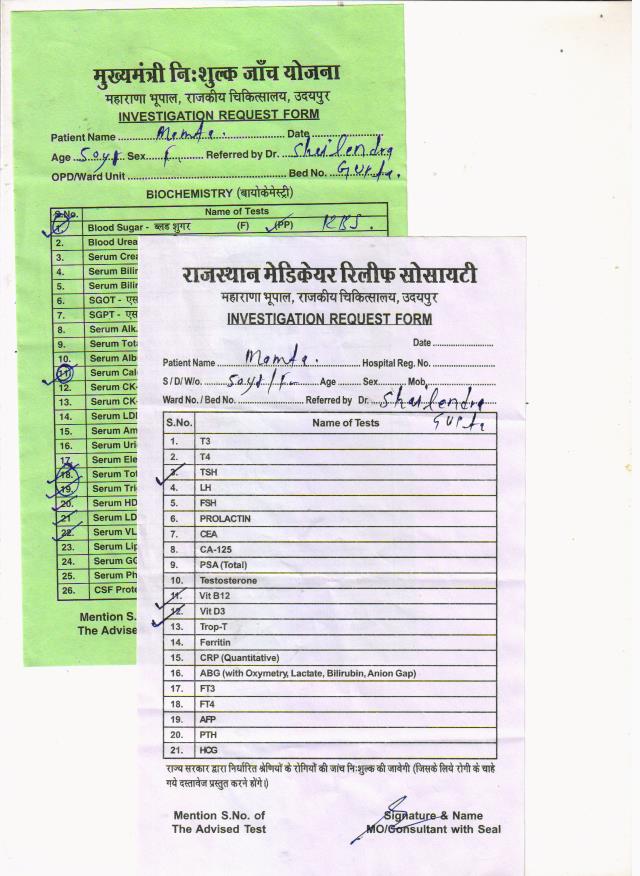 मुख्यमंत्री नि:शुल्क जाँच योजना
महाराणा भूपाल, राजकीय चिकित्सालय, उदयपुर
INVESTIGATION REQUEST FORM
Patient Name Mamta. Date
Age 50yr Sex F Referred by Dr. Shailendra
OPD/Ward Unit Bed No. Gupta.
BIOCHEMISTRY (बायोकेमेस्ट्री)
S.No. Name of Tests
1. Blood Sugar - ब्लड शुगर (F) (PP) RBS.
2. Blood Urea
3. Serum Crea
4. Serum Bilir
5. Serum Bilir
6. SGOT - एस
7. SGPT - एस
8. Serum Alk.
9. Serum Tota
10. Serum Alb
11. Serum Calc
12. Serum CK-
13. Serum CK-
14. Serum LDH
15. Serum Am
16. Serum Uri
17. Serum Ele
18. Serum Tot
19. Serum Tri
20. Serum HD
21 Serum LD
22. Serum VL
23. Serum Lip
24. Serum GG
25. Serum Ph
26. CSF Prote
Mention S.
The Advise
राजस्थान मेडिकेयर रिलीफ सोसायटी
महाराणा भूपाल, राजकीय चिकित्सालय, उदयपुर
INVESTIGATION REQUEST FORM
Date
Patient Name Mamta. Hospital Reg. No.
S / D/ W/o. 50yr/F Age Sex Mob.
Ward No. / Bed No. Referred by Dr. Shailendra
Gupta
S.No. Name of Tests
1. T3
2. T4
3. TSH
4. LH
5. FSH
6. PROLACTIN
7. CEA
8. CA-125
9. PSA (Total)
10. Testosterone
11. Vit B12
12. Vit D3
13. Trop-T
14. Ferritin
15. CRP (Quantitative)
16. ABG (with Oxymetry, Lactate, Bilirubin, Anion Gap)
17. FT3
18. FT4
19. AFP
20. PTH
21. HCG
राज्य सरकार द्वारा निर्धारित श्रेणियों के रोगियों की जांच नि:शुल्क की जावेगी (जिसके लिये रोगी के चाहे
गये दस्तावेज प्रस्तुत करने होंगे।)
Mention S.No. of Signature & Name
The Advised Test MO/Consultant with Seal